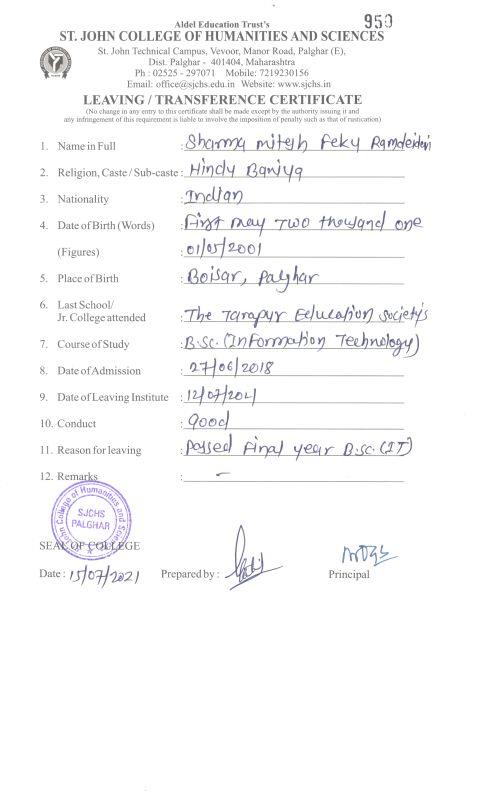 Aldel Education Trust's
959
ST. JOHN COLLEGE OF HUMANITIES AND SCIENCES
St. John Technical Campus, Vevoor, Manor Road, Palghar (E),
Dist. Palghar - 401404, Maharashtra
Ph : 02525 - 297071 Mobile: 7219230156
Email: office@sjchs.edu.in Website: www.sjchs.in
LEAVING / TRANSFERENCE CERTIFICATE
(No change in any entry to this certificate shall be made except by the authority issuing it and
any infringement of this requirement is liable to involve the imposition of penalty such as that of rustication)
1. Name in Full : Sharma Mitesh Feku Ramdeidevi
2. Religion, Caste / Sub-caste : Hindu Baniya
3. Nationality : Indian
4. Date of Birth (Words) : First may Two thousand one
(Figures) : 01/05/2001
5. Place of Birth : Boisar, Palghar
6. Last School/
Jr. College attended : The Tarapur Education Society's
7. Course of Study : B.Sc. (Information Technology)
8. Date of Admission : 27/06/2018
9. Date of Leaving Institute : 12/07/2021
10. Conduct : Good
11. Reason for leaving : Passed Final year B.Sc. (IT)
12. Remarks : -
St. John College of Humanities and Sciences
SJCHS
PALGHAR
SEAL OF COLLEGE
Date : 15/07/2021 Prepared by : Principal